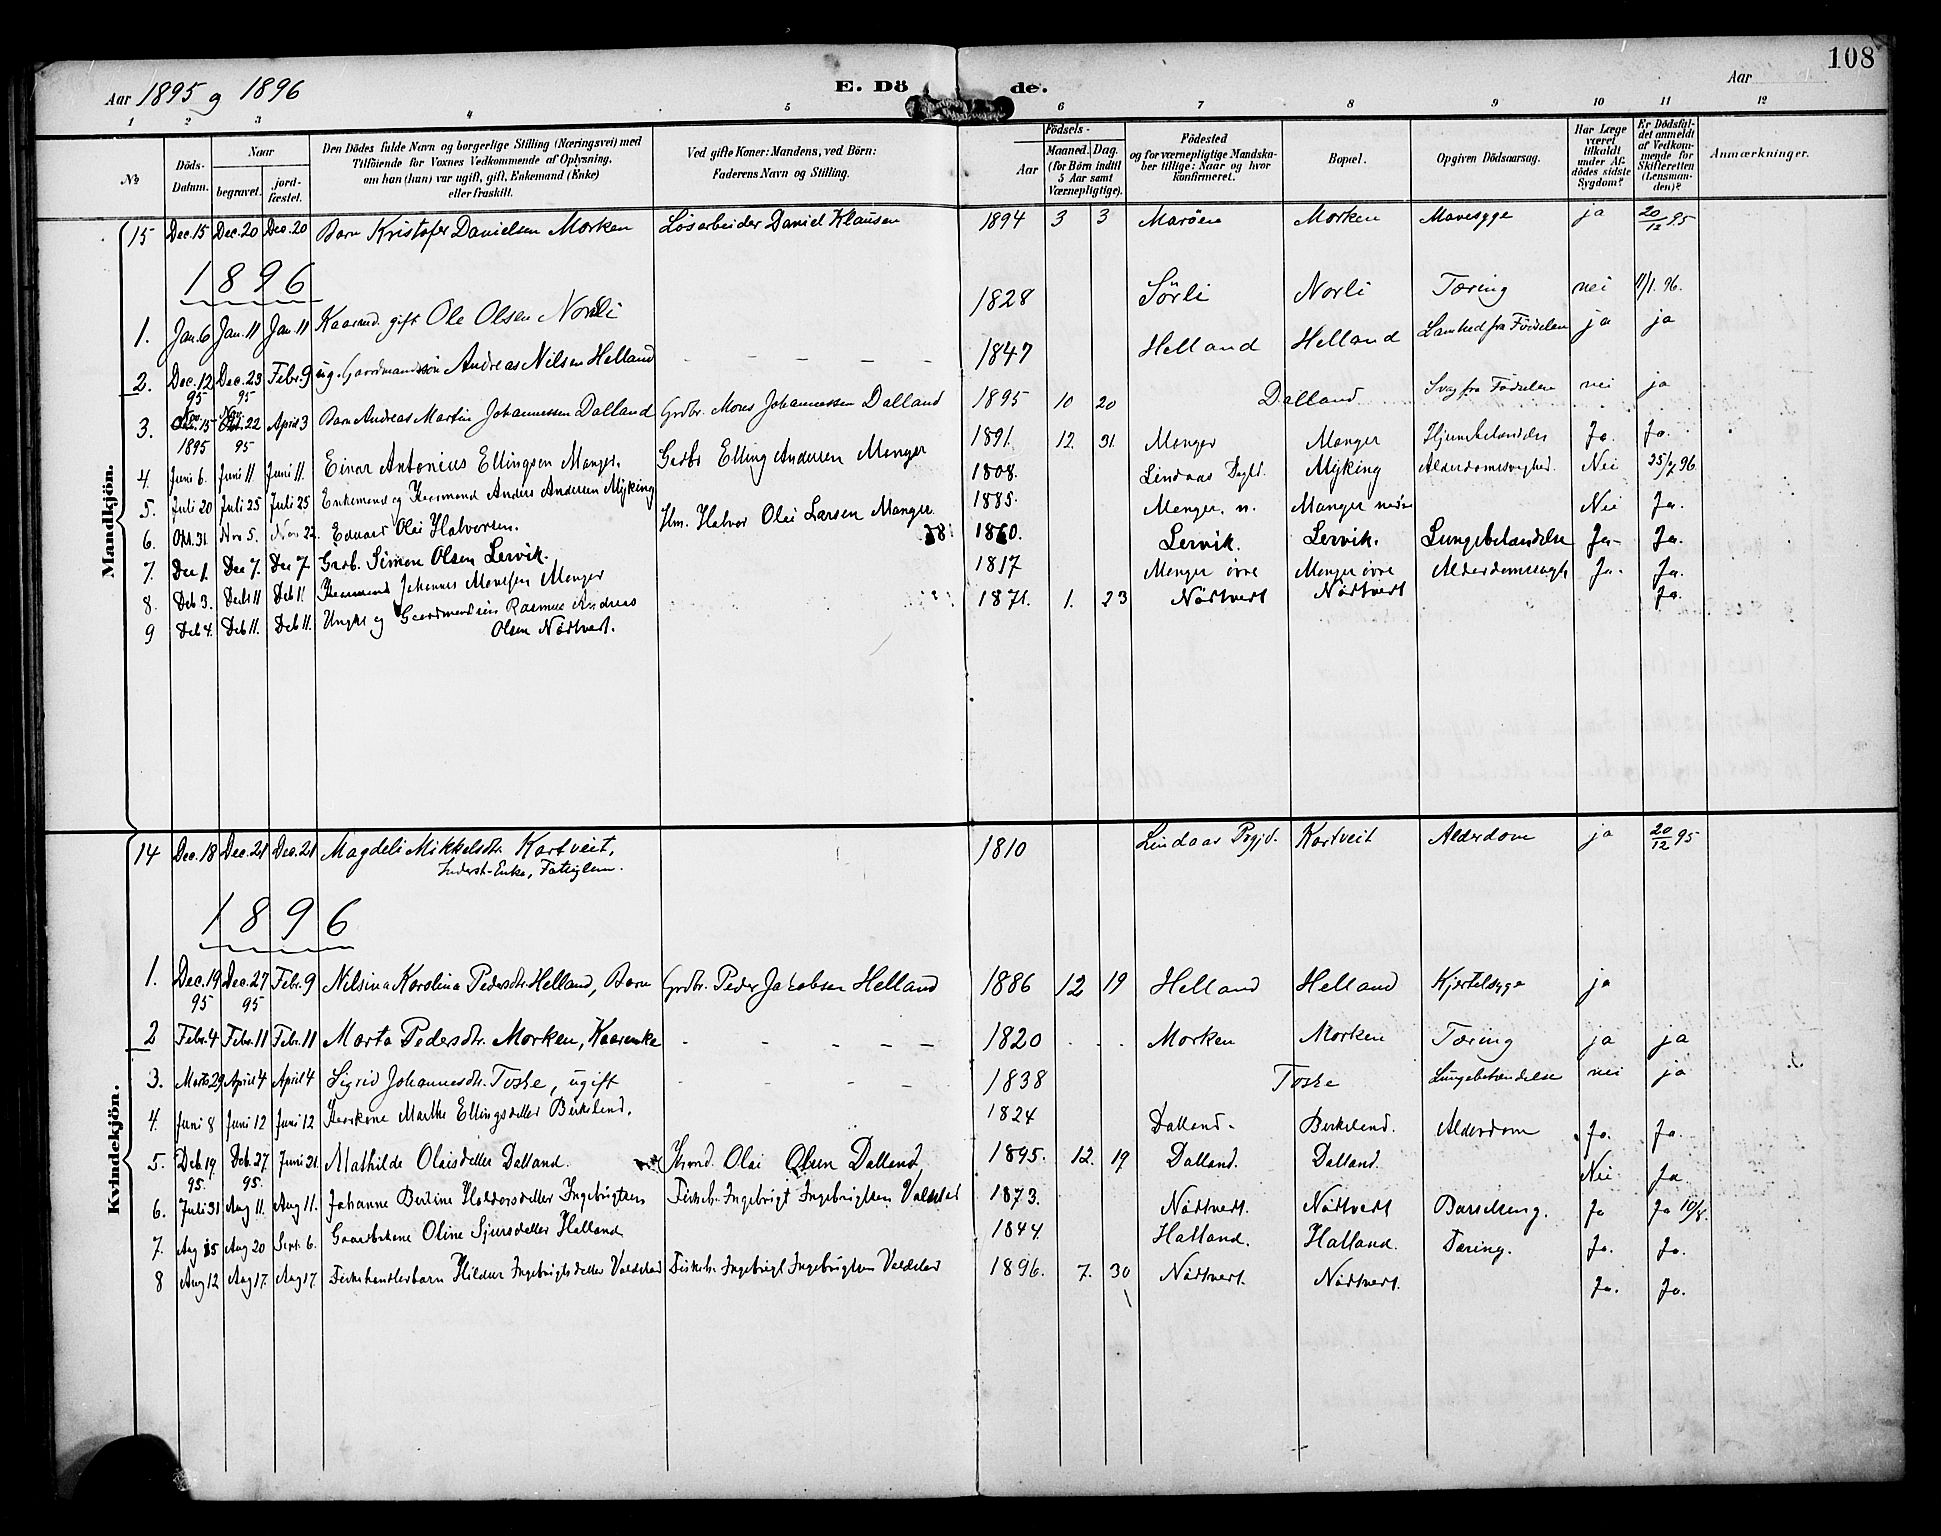 108
Aar 1895 og 1896 E. Dö de. Aar
1 2 3 4 5 6 7 8 9 10 11 12
№ Döds-Datum. Naar begravet. jord-fæstet. Den Dödes fulde Navn og borgerlige Stilling (Næringsvei) med Tilföiende for Voxnes Vedkommende af Oplysning, om han (hun) var ugift, gift, Enkemand (Enke) eller fraskilt. Ved gifte Koner: Mandens, ved Börn: Faderens Navn og Stilling. Födsels- Aar Maaned. Dag. (for Börn indtil 5 Aar samt Værnepligtige). Födested og for værnepligtige Mandska-ber tillige: Naar og hvor konfirmeret. Bopæl. Opgiven Dödsaarsag. Har Læge været tilkaldt under Af-dödes sidste Sygdom? Er Dödsfal-det anmeldt af Vedkom-mende for Skifteretten (Lensman-den)? Anmærkninger.
Mandkjön.
15 Dec. 15 Dec. 20 Dec. 20 Barn Kristofer Danielsen Morken Løsarbeider Daniel Klausen 1894 3 3 Marøen Morken Mavesyge ja 20/12 95
1896
1. Jan. 6 Jan. 11 Jan. 11 Kaarmd. gift Ole Olsen Norli 1828 Sörli Norli Tæring nei 11/1. 96.
2. Dec. 12 95 Dec. 23 95 Febr. 9 ug. Gaardmandssön Andreas Nilsen Helland - - - - - 1847 Helland Helland Lamhed fra Födselen ja ja
3. Nov. 15 1895 Nov. 22 95 April 3 Barn Andreas Martin Johannessen Dalland Grdbr. Mons Johannessen Dalland 1895 10 20 Dalland Svag fra Födselen nei ja
4. Juni 6. Juni 11 Juni 11. Einar Antonius Ellingsen Manger. Grdbr Elling Andersen Manger 1891. 12. 31. Manger Manger Hjernebetændelse Ja. Ja.
5. Juli 20 Juli 25 Juli 25 Enkemand og Kaarmand Anders Andersen Mÿking 1808. Lindaas Prgld. Mÿking Alderdomssvaghed. Nei 25/7 96.
6. Okt. 31. Nov 5. Nov 22. Eduard Olai Halvorsen. Hm. Halvor Olai Larsen Manger. 1885. Manger. n. Manger nedre Nei Ja.
7. Dec 1. Dec 7. Dec 7 Grdb. Simon Olsen Lervik. 18: 1860. Lervik. Lervik. Lungebetændelse Ja- Ja.
8. Deb 3. Deb 11 Deb 11. Kaarmand Johannes Monssen Manger 1817 Manger övre Manger övre Alderdomssvagh. Ja. Ja.
9 Deb 4. Deb 11. Deb 11. Ungkl og Gaardmandssön Rasmus Andreas 1871. 1. 23 Nödtvedt Nödtvedt Ja.
Olsen Nödtvedt.
Kvindekjön.
14 Dec. 18 Dec. 21 Dec. 21 Magdeli Mikkelsdtr. Kartveit, 1810 Lindaas Prgjd. Kartveit Alderdom ja 20/12 95
Inderst-Enke, Fattiglem.
1896
1. Dec. 19 95 Dec. 27 95 Febr. 9 Nilsina Karolina Pedersdtr. Helland, Barn Grdbr. Peder Jakobsen Helland 1886 12 19 Helland Helland Kjertelsyge ja
2 Febr. 4 Febr. 11 Febr. 11 Marta Pedersdtr. Morken, Kaarenke - - - - - 1820 Morken Morken Tæring ja ja
3. Marts 29 April 4 April 4 Sigrid Johannesdtr. Toske, ugift - - - - 1838 Toske Lungebetændelse nei ja
4. Juni 8 Juni 12 Juni 12 Kaarkone Marthe Ellingsdatter Birkeland. 1824 Dalland. Birkeland. Alderdom Ja. Ja.
5. Deb 19. 95. Deb. 27 95. Juni 21. Mathilde Olaisdatter Dalland. Hsmd. Olai Olsen Dalland 1895. 12. 19 Dalland. Dalland. Nei Ja.
6. Juli 31 Aug 11. Aug 11. Johanne Bertine Haldorsdatter Ingebrigtsen Fiskeh. Ingebrigt Ingebrigtsen Valdstad 1873. Nödtvedt. Nödtvedt Barselseng. Ja Ja 10/8.
7. Aug 15 Aug 20 Sept. 6. Gaardbrkone Oline Sjursdatter Halland 1844 Halland. Halland. Tæring. Ja. Ja.
8 Aug 12 Aug 17. Aug 17. Fiskehandlerbarn Hildur Ingebrigtsdatter Valdstad Fiskeh. Ingebrigt Ingebrigtsen Valdstad 1896. 7. 30 Nödtvedt. Nödtvedt. Ja. Ja.